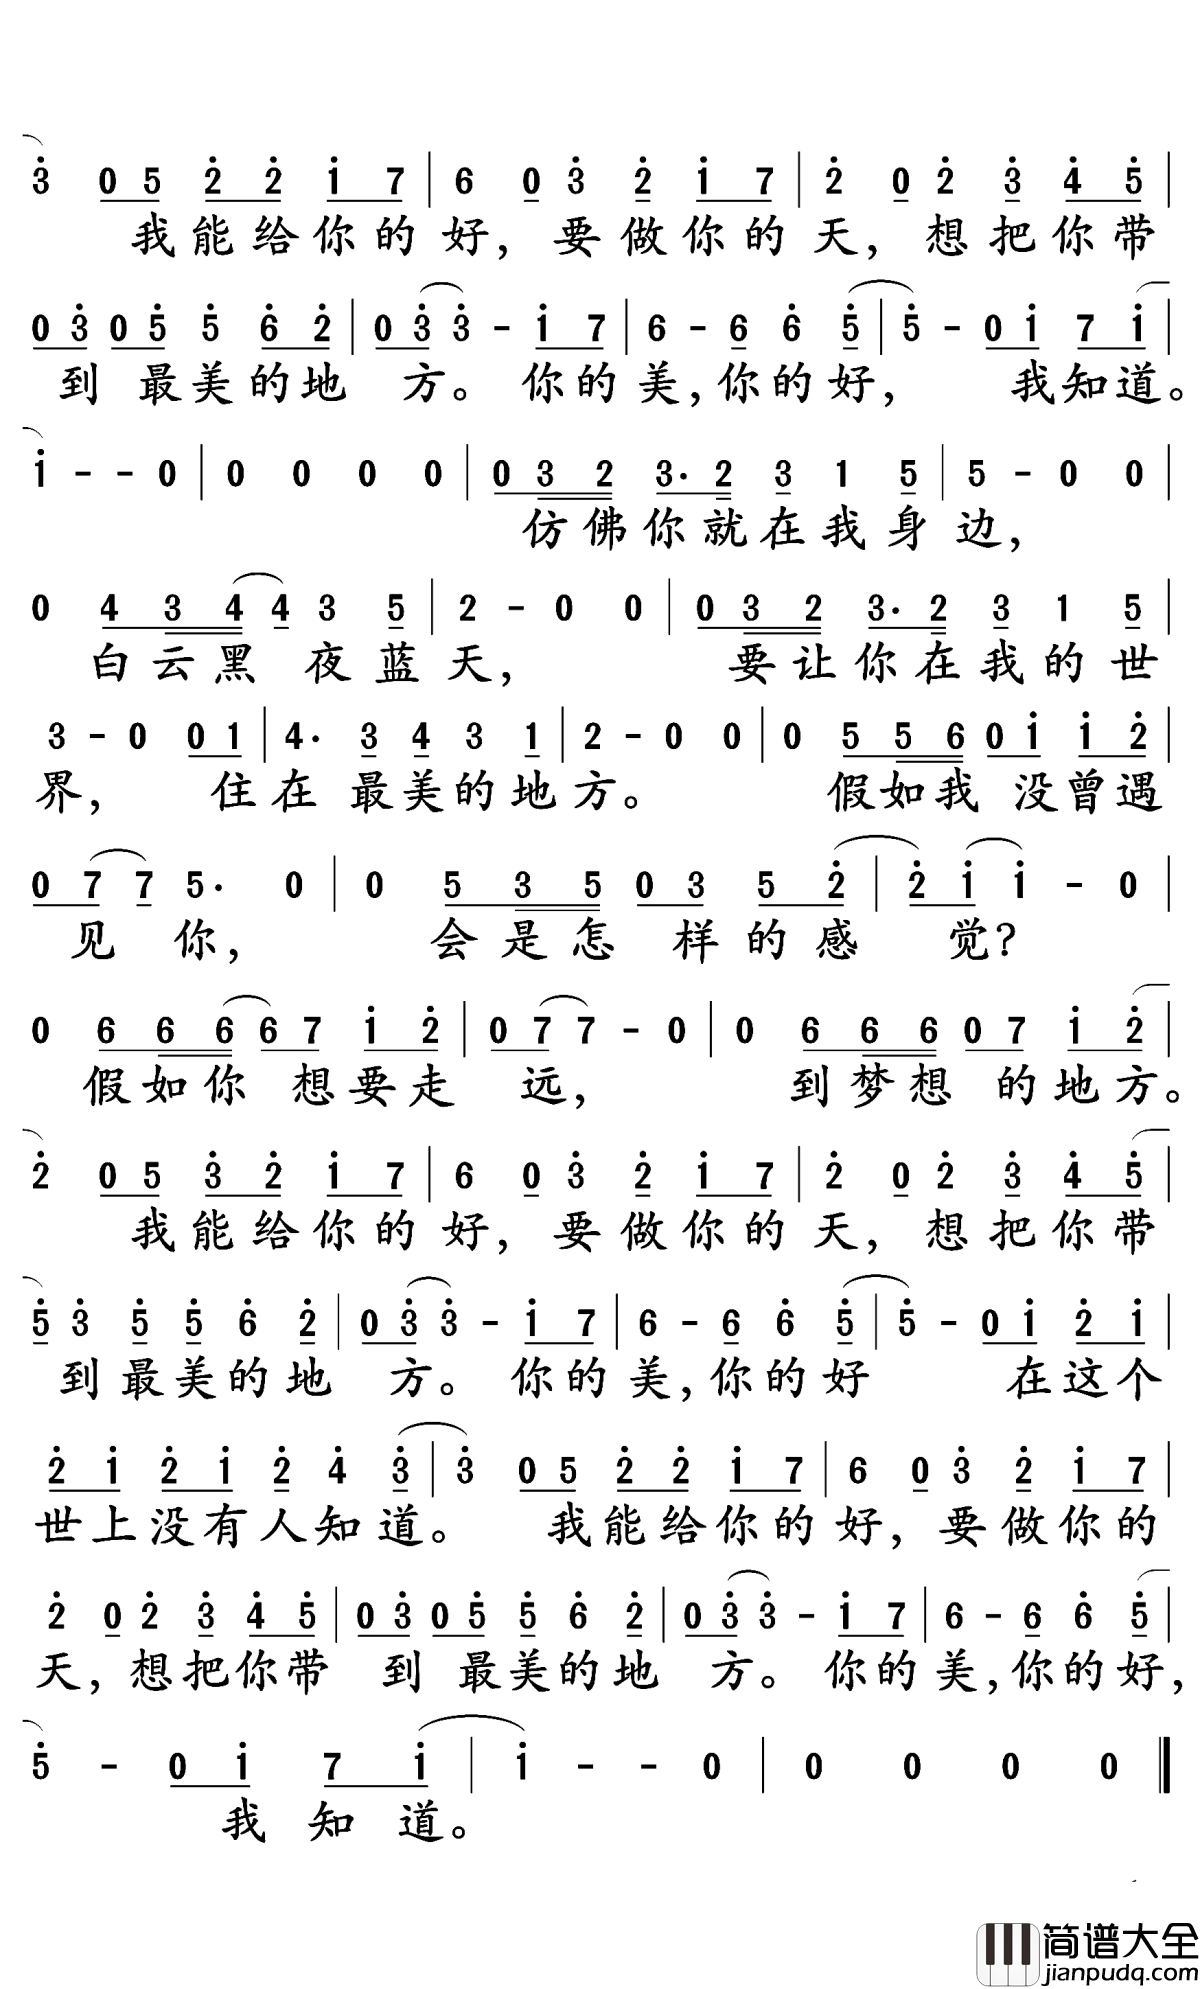 3 0 5 2 2 1 7 | 6 0 3 2 1 7 | 2 0 2 3 4 5 |
我能给你的好,要做你的天,想把你带
0 3 0 5 5 6 2 | 0 3 3 - 1 7 | 6 - 6 6 5 | 5 - 0 1 7 1 |
到最美的地方。你的美,你的好,我知道。
1 - - 0 | 0 0 0 0 | 0 3 2 3· 2 3 1 5 | 5 - 0 0 |
仿佛你就在我身边,
0 4 3 4 4 3 5 | 2 - 0 0 | 0 3 2 3· 2 3 1 5 |
白云黑夜蓝天,要让你在我的世
3 - 0 0 1 | 4· 3 4 3 1 | 2 - 0 0 | 0 5 5 6 0 1 1 2 |
界,住在最美的地方。假如我没曾遇
0 7 7 5· 0 | 0 5 3 5 0 3 5 2 | 2 1 1 - 0 |
见你,会是怎样的感觉?
0 6 6 6 6 7 1 2 | 0 7 7 - 0 | 0 6 6 6 0 7 1 2 |
假如你想要走远,到梦想的地方。
2 0 5 3 2 1 7 | 6 0 3 2 1 7 | 2 0 2 3 4 5 |
我能给你的好,要做你的天,想把你带
5 3 5 5 6 2 | 0 3 3 - 1 7 | 6 - 6 6 5 | 5 - 0 1 2 1 |
到最美的地方。你的美,你的好在这个
2 1 2 1 2 4 3 | 3 0 5 2 2 1 7 | 6 0 3 2 1 7 |
世上没有人知道。我能给你的好,要做你的
2 0 2 3 4 5 | 0 3 0 5 5 6 2 | 0 3 3 - 1 7 | 6 - 6 6 5 |
天,想把你带到最美的地方。你的美,你的好,
5 - 0 1 7 1 | 1 - - 0 | 0 0 0 0 ‖
我知道。
简谱大全
jianpudq.com